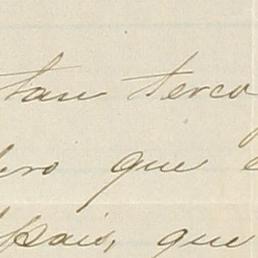 tan terco
bro que e
pais, que